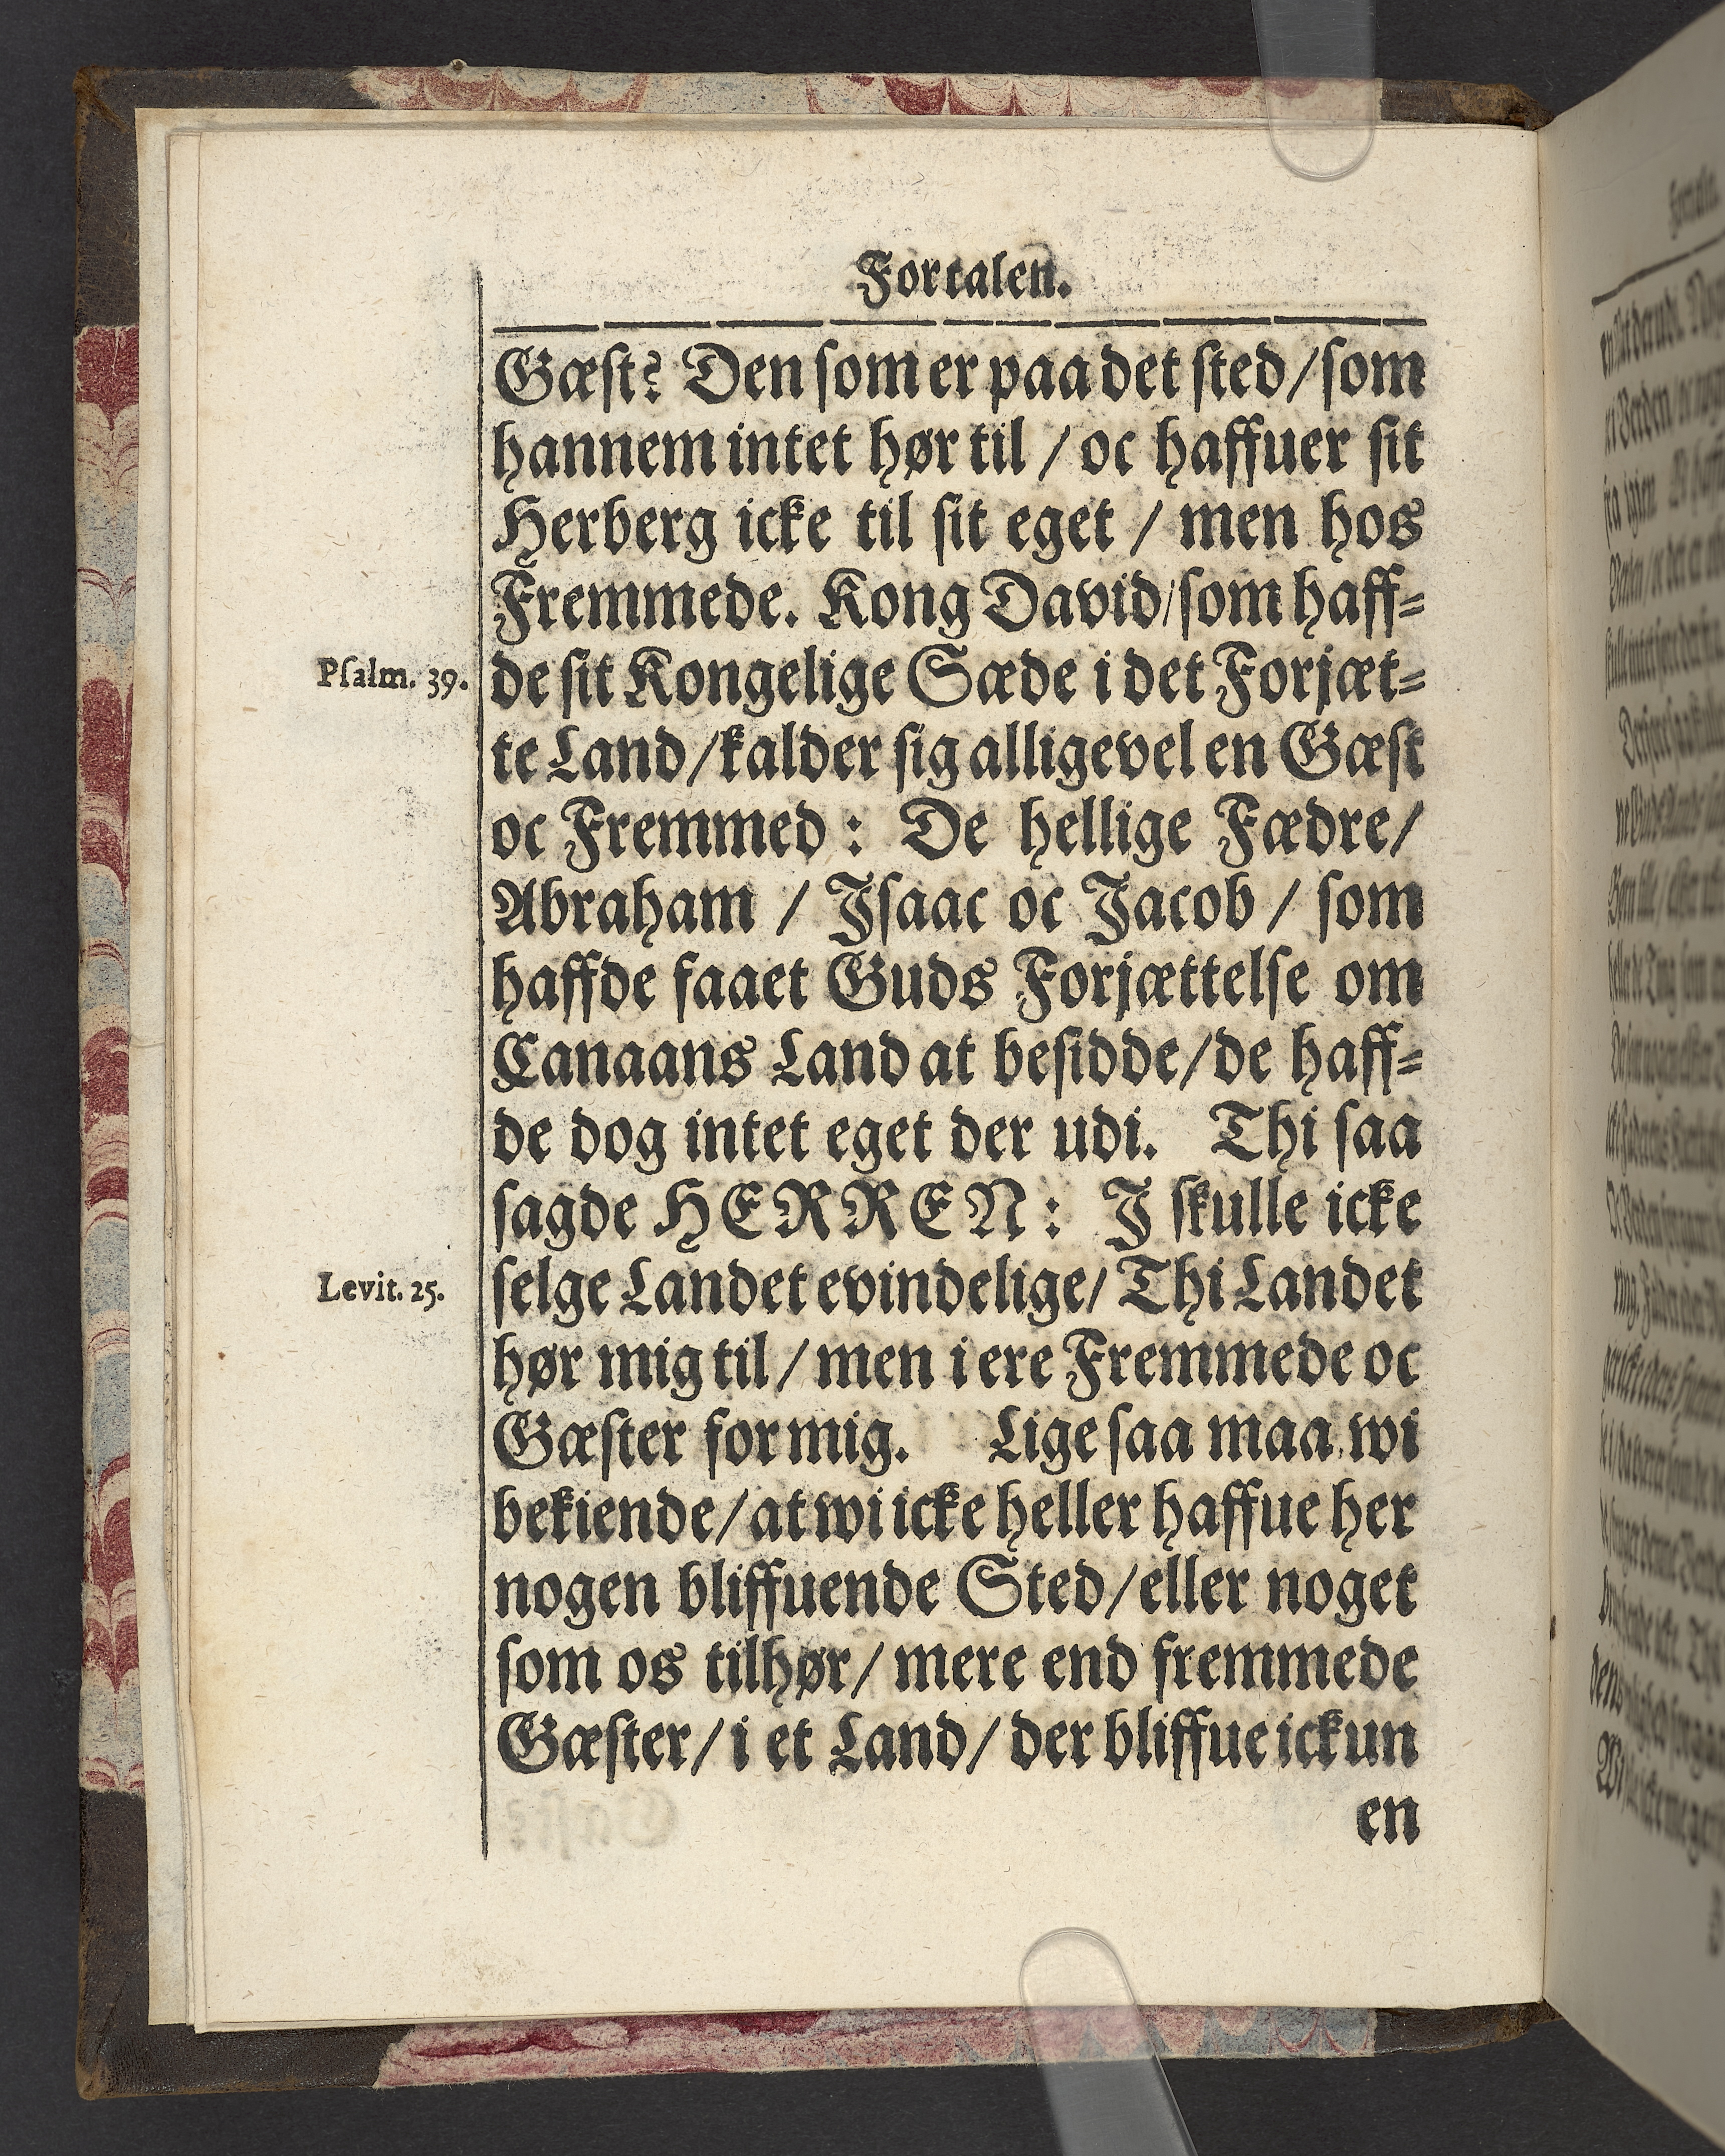 Fortalen.
Gæst? Den som er paa det sted/ som
hannem intet hør til / oc haffuer sit
Herberg icke til sit eget / men hos
Fremmede. Kong David/ som haff-
Psalm. 39.
de sit Kongelige Sæde i det Forjæt-
te Land/ kalder sig alligevel en Gæst
oc Fremmed : De hellige Fædre/
Abraham / Isaac oc Jacob / som
haffde faaet Guds Forjættelse om
Canaans Land at besidde/ de haff-
de dog intet eget der udi. Thi saa
sagde HERREN : I skulle icke
Levit. 25.
selge Landet evindelige/ Thi Landet
hør mig til / men i ere Fremmede oc
Gæster for mig. Lige saa maa wi
bekiende/ at wi icke heller haffue her
nogen bliffuende Sted/ eller noget
som os tilhør/ mere end fremmede
Gæster/ i et Land/ der bliffue ickun
en